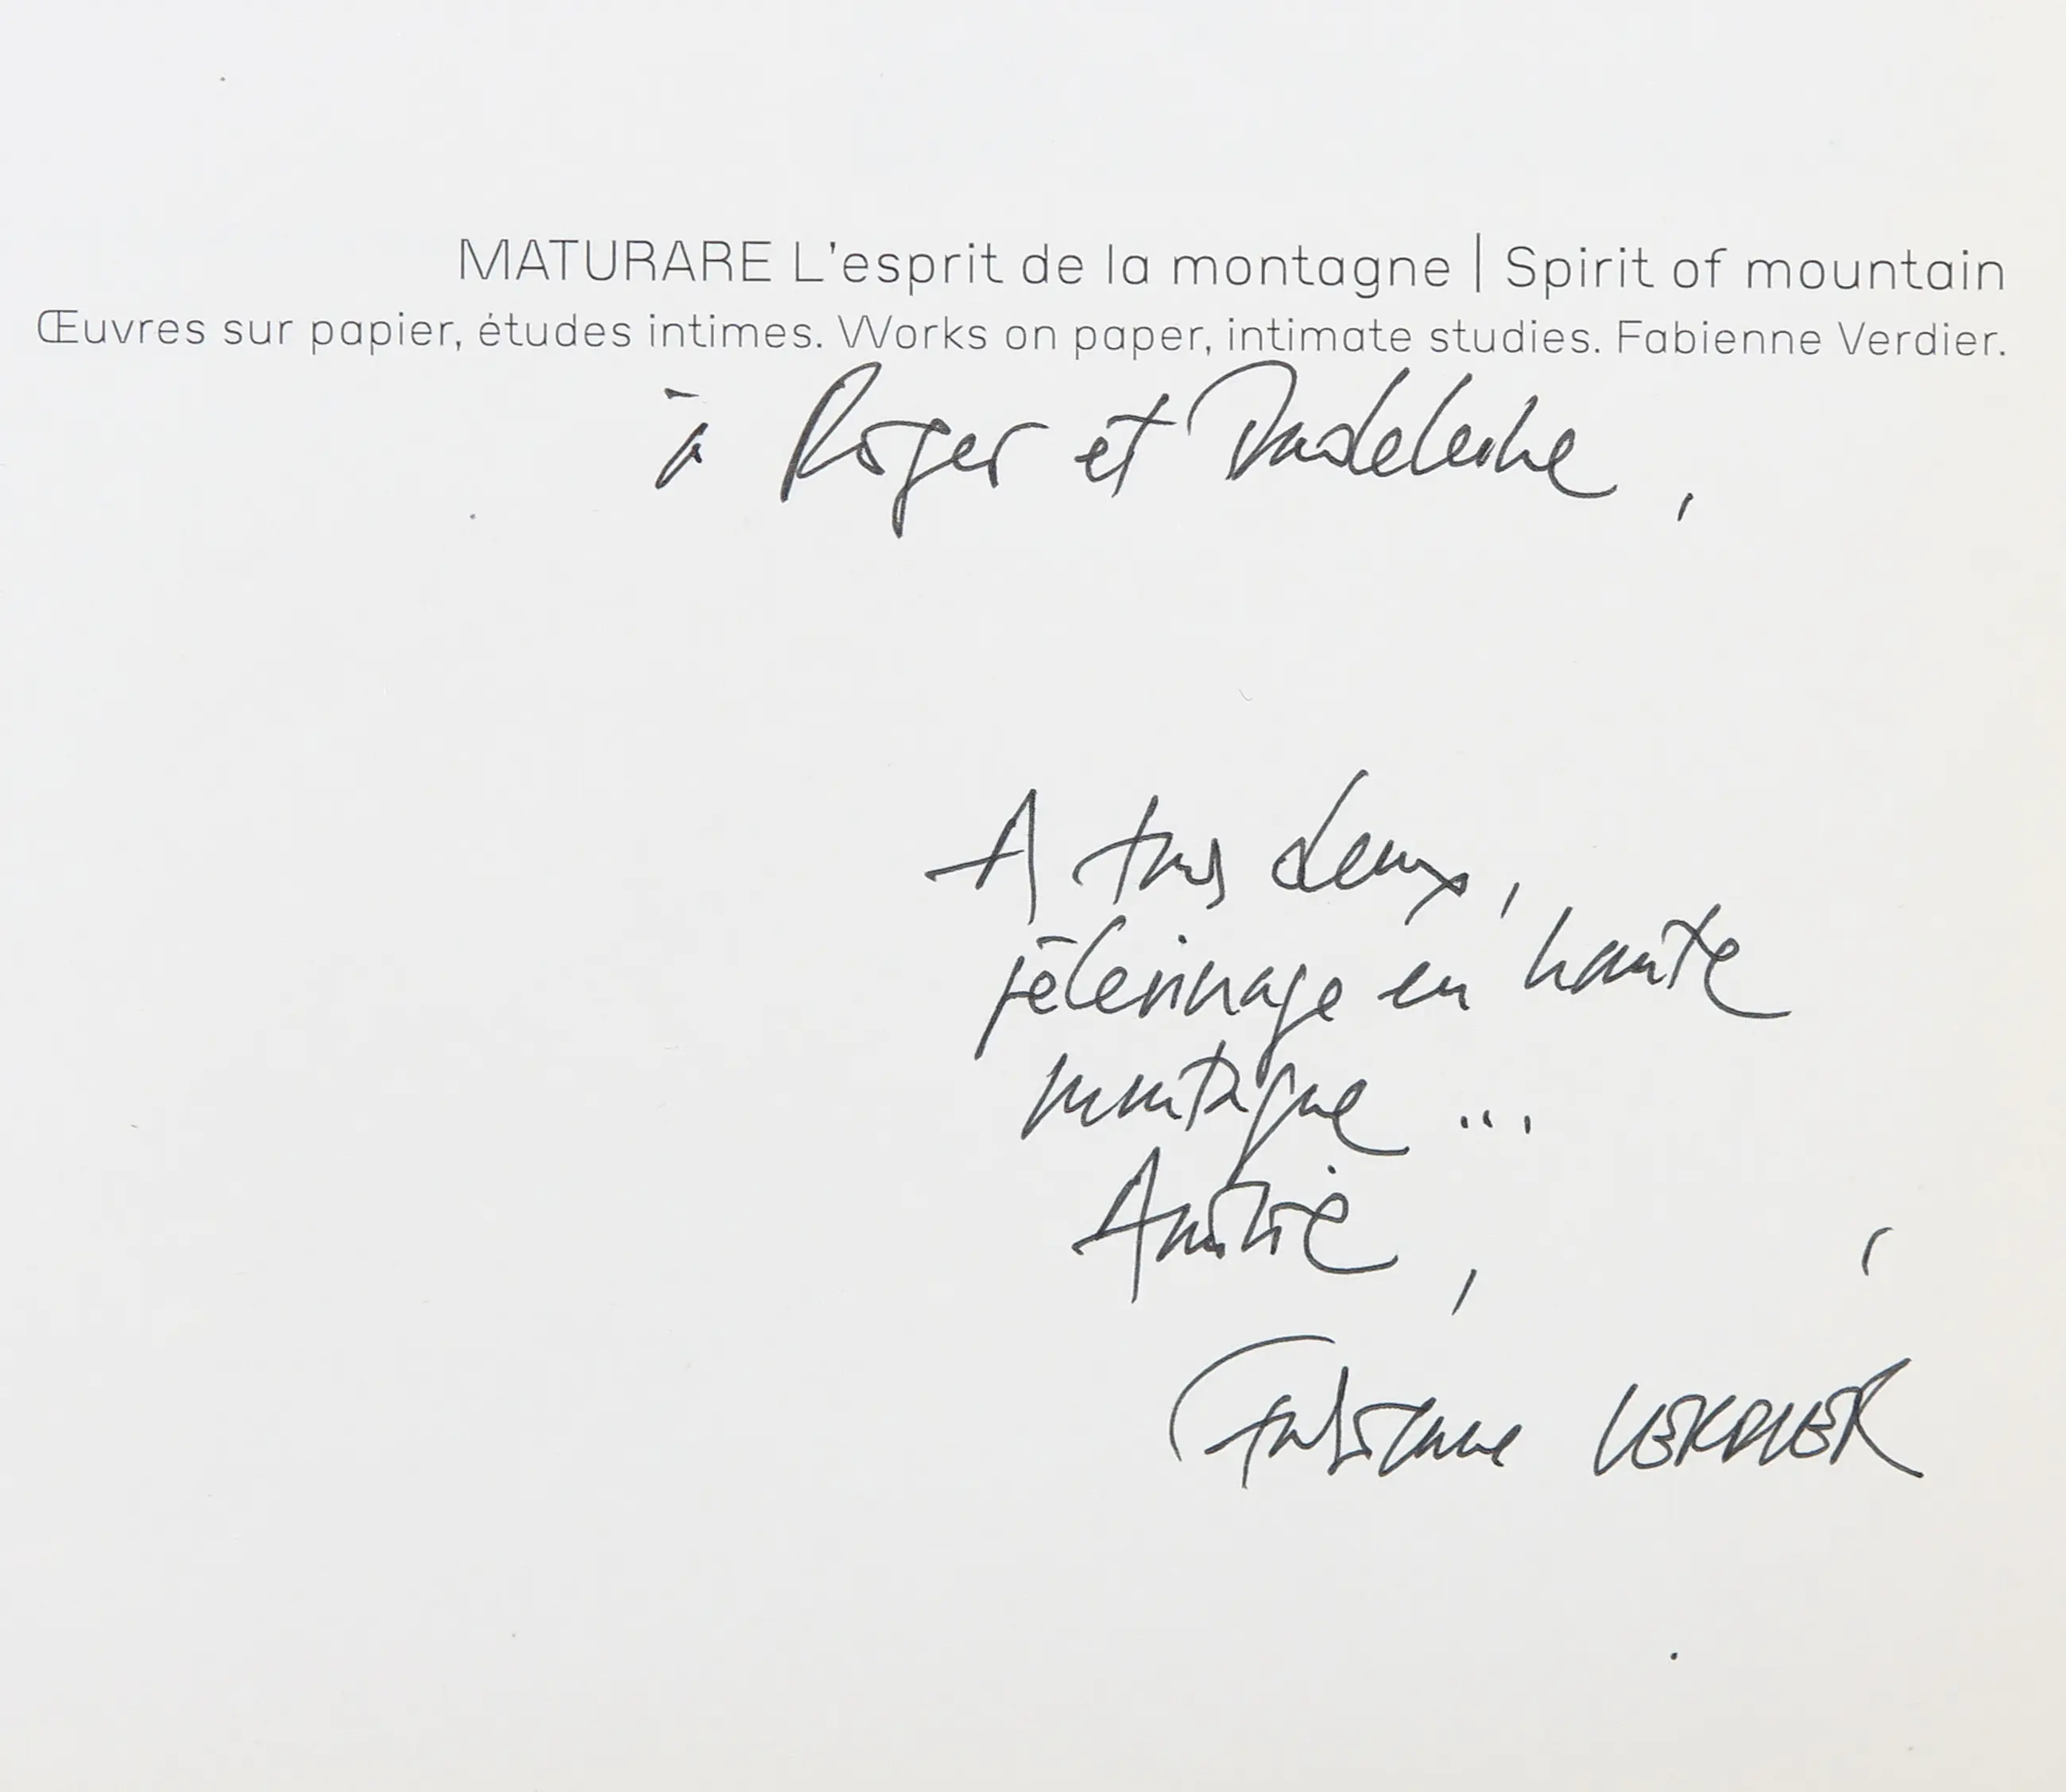 MATURARE L'esprit de la montagne | Spirit of mountain
Œuvres sur papier, études intimes. Works on paper, intimate studies. Fabienne Verdier.
à Roger et Madeleine,
A tous deux,
pèlerinage en haute
montagne ...
Amitié,
Fabienne VERDIER